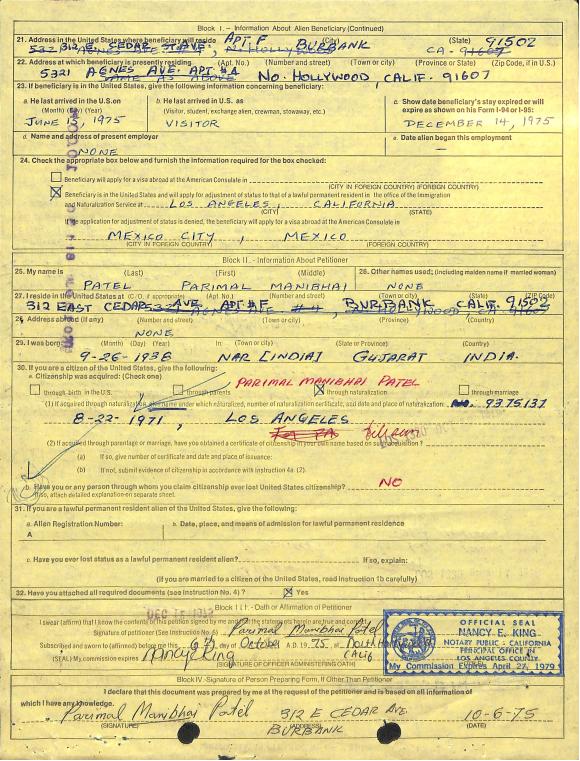 Block I. – Information About Alien Beneficiary (Continued)
21. Address in the United States where beneficiary will reside (City) (State)
312 E. CEDAR AVE. APT F BURBANK CA- 91502
22. Address at which beneficiary is presently residing (Apt. No.) (Number and street) (Town or city) (Province or State) (Zip Code, if in U.S.)
5321 AGNES AVE. APT #4 NO. HOLLYWOOD CALIF. 91607
SAME AS ABOVE
23. If beneficiary is in the United States, give the following information concerning beneficiary:
a. He last arrived in the U.S. on (Month) (Day) (Year)
b. He last arrived in U.S. as (Visitor, student, exchange alien, crewman, stowaway, etc.)
c. Show date beneficiary's stay expired or will expire as shown on his Form I-94 or I-95:
JUNE 15, 1975 VISITOR DECEMBER 14, 1975
d. Name and address of present employer e. Date alien began this employment
NONE —
24. Check the appropriate box below and furnish the information required for the box checked:
Beneficiary will apply for a visa abroad at the American Consulate in
(CITY IN FOREIGN COUNTRY) (FOREIGN COUNTRY)
Beneficiary is in the United States and will apply for adjustment of status to that of a lawful permanent resident in the office of the Immigration
and Naturalization Service at LOS ANGELES, CALIFORNIA
(CITY) (STATE)
If the application for adjustment of status is denied, the beneficiary will apply for a visa abroad at the American Consulate in
MEXICO CITY, MEXICO
(CITY IN FOREIGN COUNTRY) (FOREIGN COUNTRY)
Block II. - Information About Petitioner
25. My name is (Last) (First) (Middle) 26. Other names used; (including maiden name if married woman)
PATEL PARIMAL MANIBHAI NONE
27. I reside in the United States at (C/O, if appropriate) (Apt. No.) (Number and street) (Town or city) (State) (ZIP Code)
312 EAST CEDAR AVE APT # F, BURBANK CALIF. 91502
28. Address abroad (if any) (Number and street) (Town or city) (Province) (Country)
NONE
29. I was born: (Month) (Day) (Year) In: (Town or city) (State or Province) (Country)
9-26-1938 NAR [INDIA] GUJARAT INDIA.
30. If you are a citizen of the United States, give the following:
a. Citizenship was acquired: (Check one) PARIMAL MANIBHAI PATEL
through birth in the U.S. through parents through naturalization through marriage
(1) If acquired through naturalization, give name under which naturalized, number of naturalization certificate, and date and place of naturalization: No. 9375137
8-22-1971, LOS ANGELES
(2) If acquired through parentage or marriage, have you obtained a certificate of citizenship in your own name based on such acquisition?
(a) If so, give number of certificate and date and place of issuance:
(b) If not, submit evidence of citizenship in accordance with Instruction 4a (2).
b. Have you or any person through whom you claim citizenship ever lost United States citizenship? NO
If so, attach detailed explanation on separate sheet.
31. If you are a lawful permanent resident alien of the United States, give the following:
a. Alien Registration Number: b. Date, place, and means of admission for lawful permanent residence
A
c. Have you ever lost status as a lawful permanent resident alien? If so, explain:
(If you are married to a citizen of the United States, read Instruction 1b carefully)
32. Have you attached all required documents (see Instruction No. 4)? Yes
Block III. - Oath or Affirmation of Petitioner
I swear (affirm) that I know the contents of this petition signed by me and that the statements herein are true and correct.
Signature of petitioner (See Instruction No. 6) Parimal Manibhai Patel
Subscribed and sworn to (affirmed) before me this 6th day of October A.D. 19 75, at North Hollywood
CALIF
(SEAL) My commission expires Nancy E King
(SIGNATURE OF OFFICER ADMINISTERING OATH)
OFFICIAL SEAL
NANCY E. KING
NOTARY PUBLIC - CALIFORNIA
PRINCIPAL OFFICE IN
LOS ANGELES COUNTY
My Commission Expires April 27, 1979
Block IV.-Signature of Person Preparing Form, If Other Than Petitioner
I declare that this document was prepared by me at the request of the petitioner and is based on all information of
which I have any knowledge.
Parimal Manibhai Patel 312 E CEDAR AVE. 10-6-75
(SIGNATURE) (ADDRESS) (DATE)
BURBANK